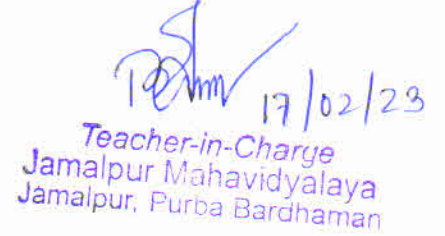 17/02/23
Teacher-in-Charge
Jamalpur Mahavidyalaya
Jamalpur, Purba Bardhaman